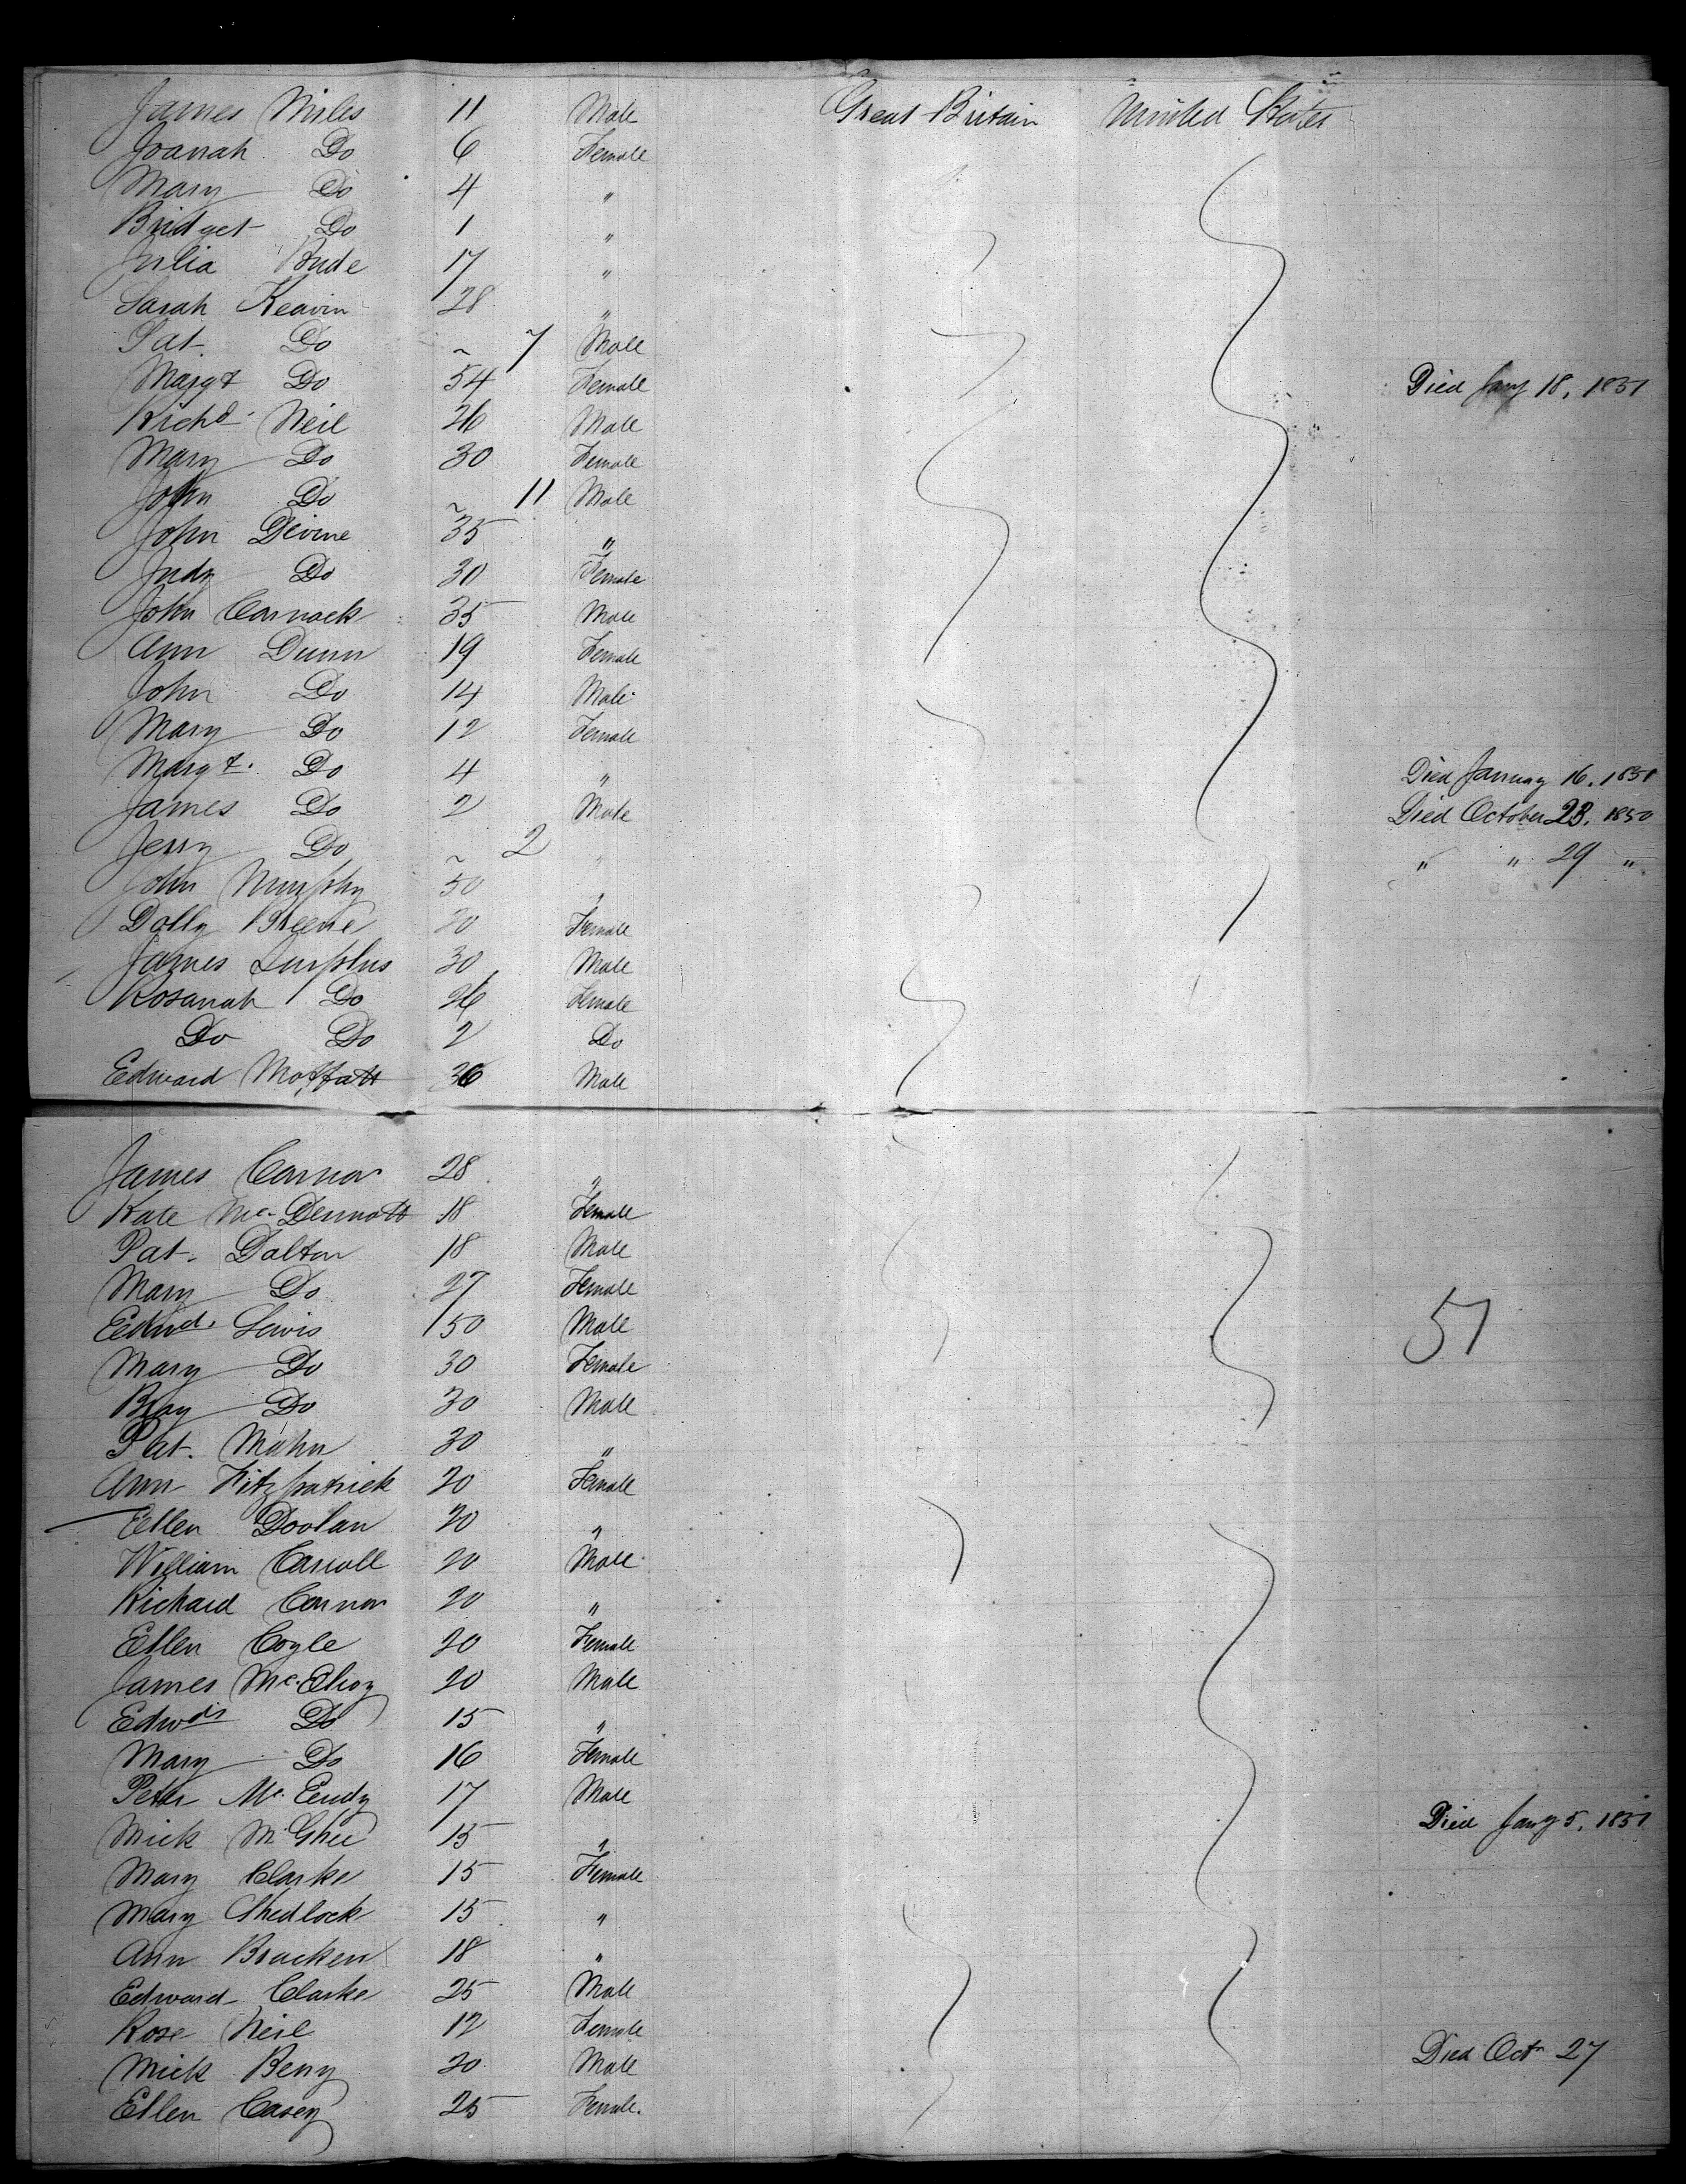 James Miles 11 Male Great Britain United States
Joanah Do 6 Female
Mary Do 4 "
Bridget Do 1 "
Julia Bude 17 "
Sarah Keavin 28 "
Pat Do ~ 7 Male
Margt Do 54 Female Died Jany 18, 1851
Richd Neil 26 Male
Mary Do 30 Female
John Do ~ 11 Male
John Devine 35 "
Judy Do 30 Female
John Cormack 35 Male
Ann Dunn 19 Female
John Do 14 Male
Mary Do 12 Female
Margt. Do 4 " Died January 16, 1851
James Do 2 Male Died October 23, 1850
Jerry Do ~ 2 " " " 29 "
John Murphy 50 "
Dolly Greene 20 Female
James Surplus 30 Male
Rosanah Do 26 Female
Do Do 2 Do
Edward Moffatt 36 Male
James Connor 28 "
Kate Mc Dermott 18 Female
Pat. Dalton 18 Male
Mary Do 27 Female
Edwd. Lewis 50 Male 51
Mary Do 30 Female
Do 30 Male
Pat. Mahn 30 "
Ann Fitzpatrick 20 Female
Ellen Doolan 20 "
William Carroll 20 Male
Richard Connor 20 "
Ellen Coyle 20 Female
James Mc Elroy 20 Male
Edwd Do 15 "
Mary Do 16 Female
Peter Mc 17 Male
Mick McGhee 15 " Died Jany 5, 1851
Mary Clarke 15 Female
Mary Shedlock 15 "
Ann Bracken 18 "
Edward Clarke 25 Male
Rose Neil 12 Female
Mick Berry 20 Male Died Octr 27
Ellen Casey 25 Female.